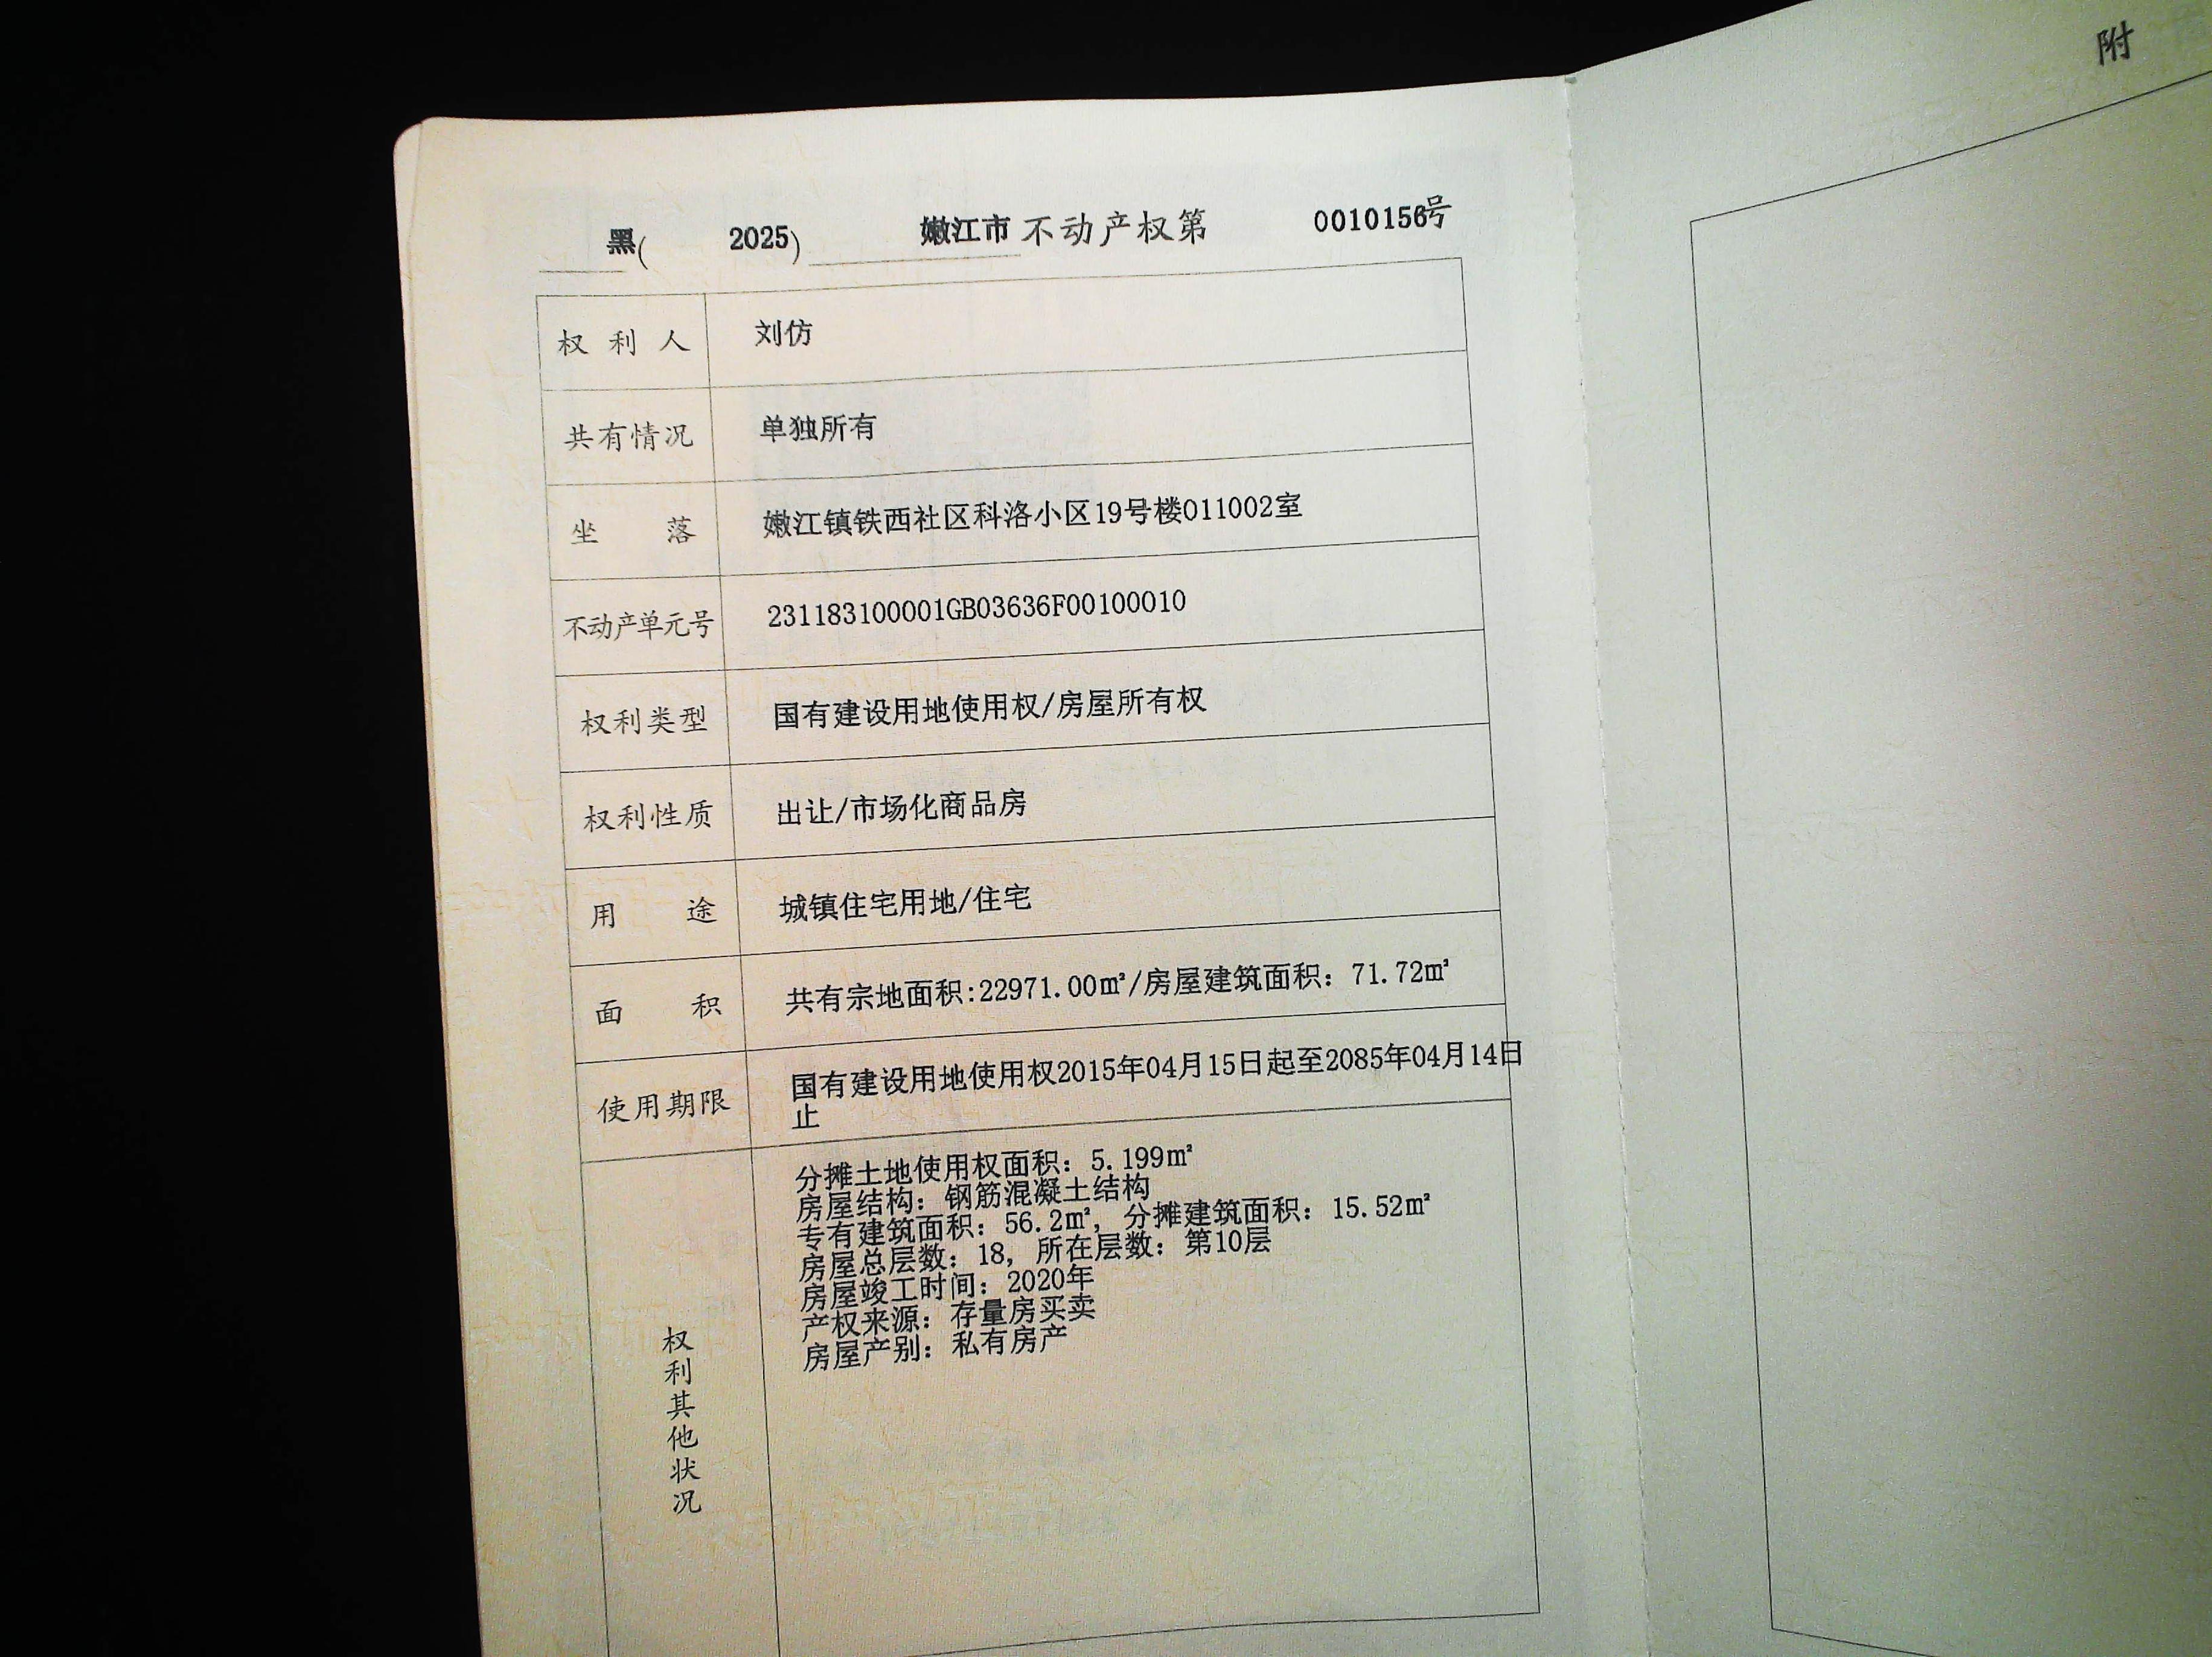 黑( 2025) 嫩江市 不动产权第 0010156号
附
权利人 刘仿
共有情况 单独所有
坐落 嫩江镇铁西社区科洛小区19号楼011002室
不动产单元号 231183100001GB03636F00100010
权利类型 国有建设用地使用权/房屋所有权
权利性质 出让/市场化商品房
用途 城镇住宅用地/住宅
面积 共有宗地面积:22971.00㎡/房屋建筑面积：71.72㎡
使用期限 国有建设用地使用权2015年04月15日起至2085年04月14日
止
权利其他状况
分摊土地使用权面积：5.199㎡
房屋结构：钢筋混凝土结构
专有建筑面积：56.2㎡，分摊建筑面积：15.52㎡
房屋总层数：18，所在层数：第10层
房屋竣工时间：2020年
产权来源：存量房买卖
房屋产别：私有房产